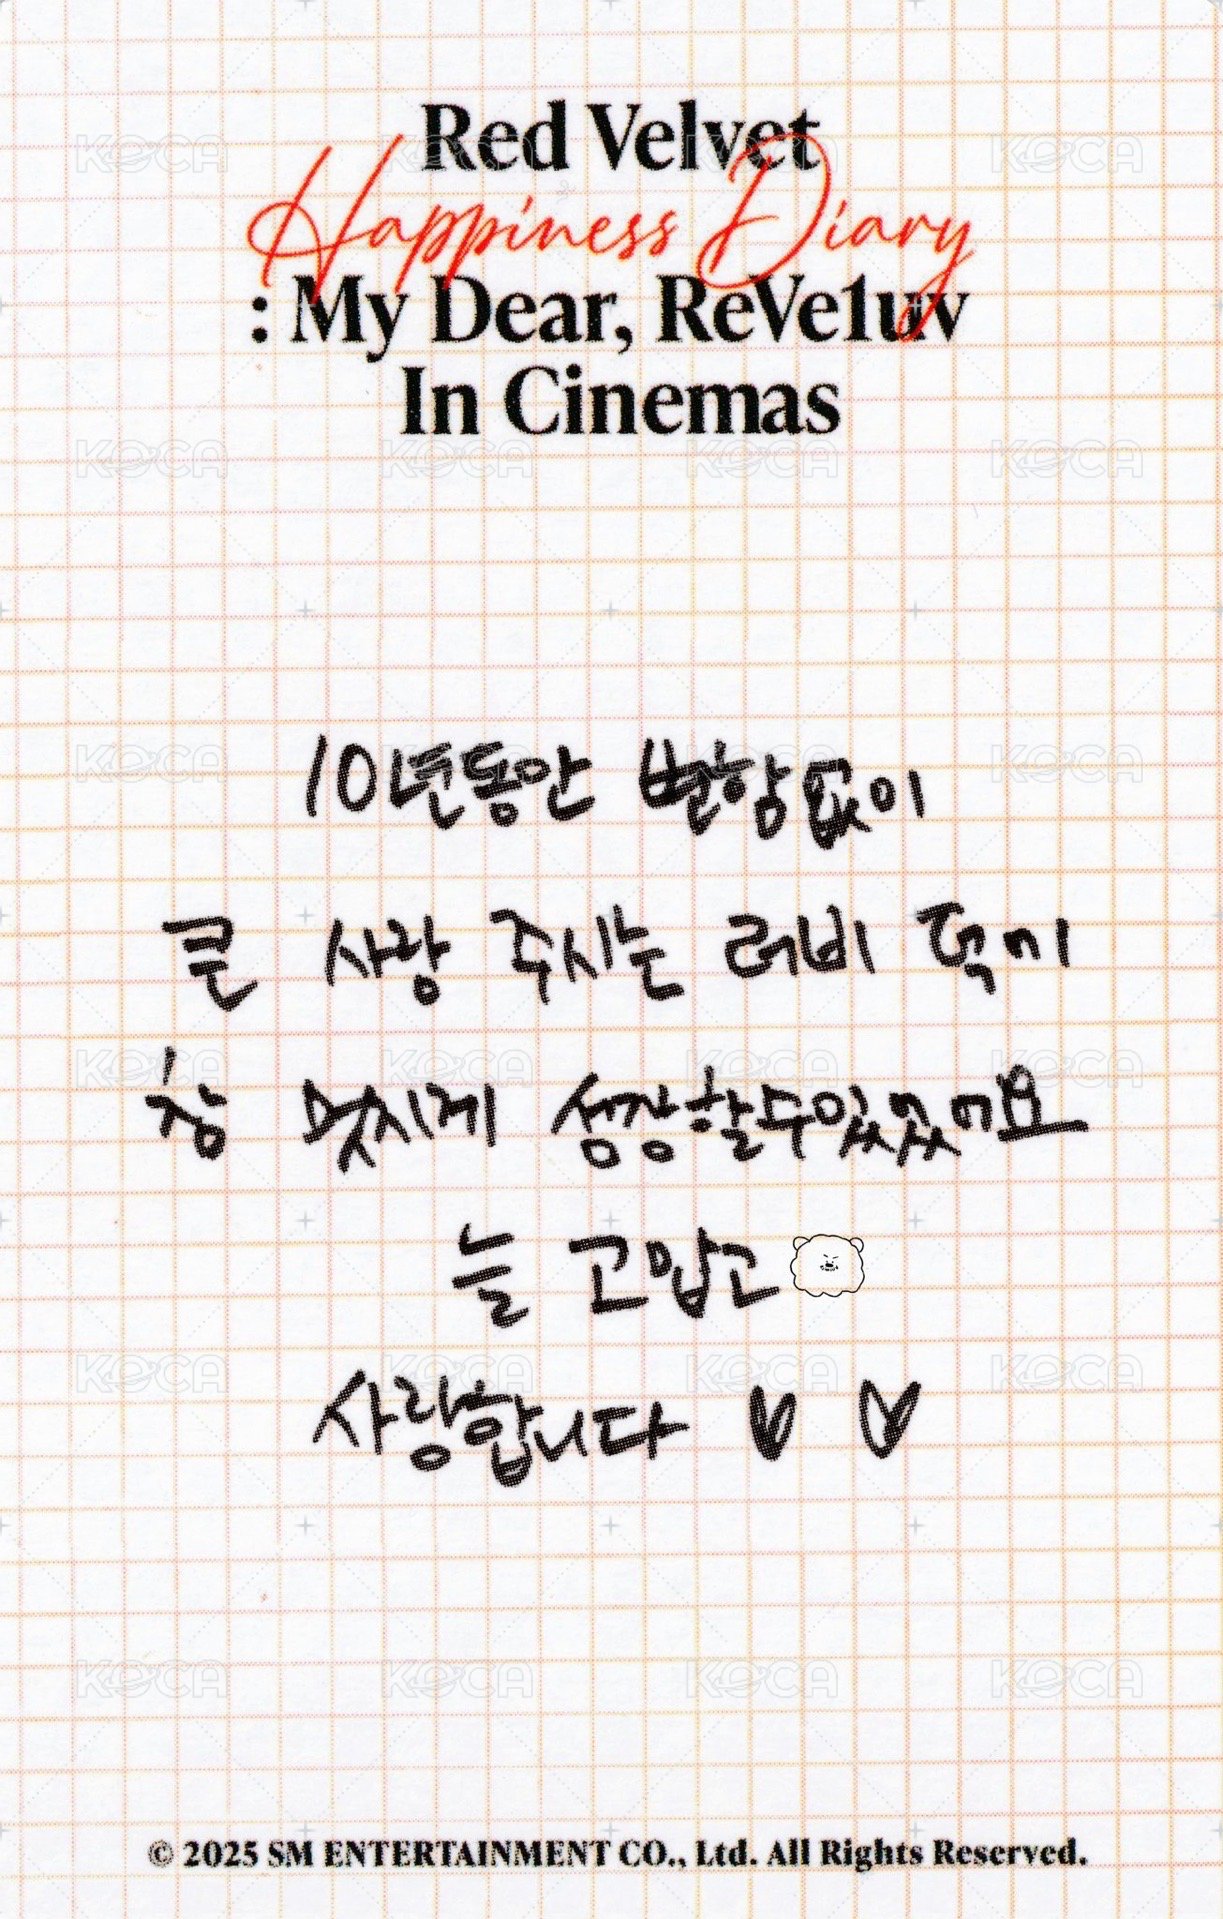 Red Velvet
Happiness Diary
: My Dear, ReVe1uv
In Cinemas
10년동안 변함없이
큰 사랑 주시는 러비 덕에
참 멋지게 성장할수있었어요
늘 고맙고
사랑합니다 ♡ ♡
© 2025 SM ENTERTAINMENT CO., Ltd. All Rights Reserved.
KOCA